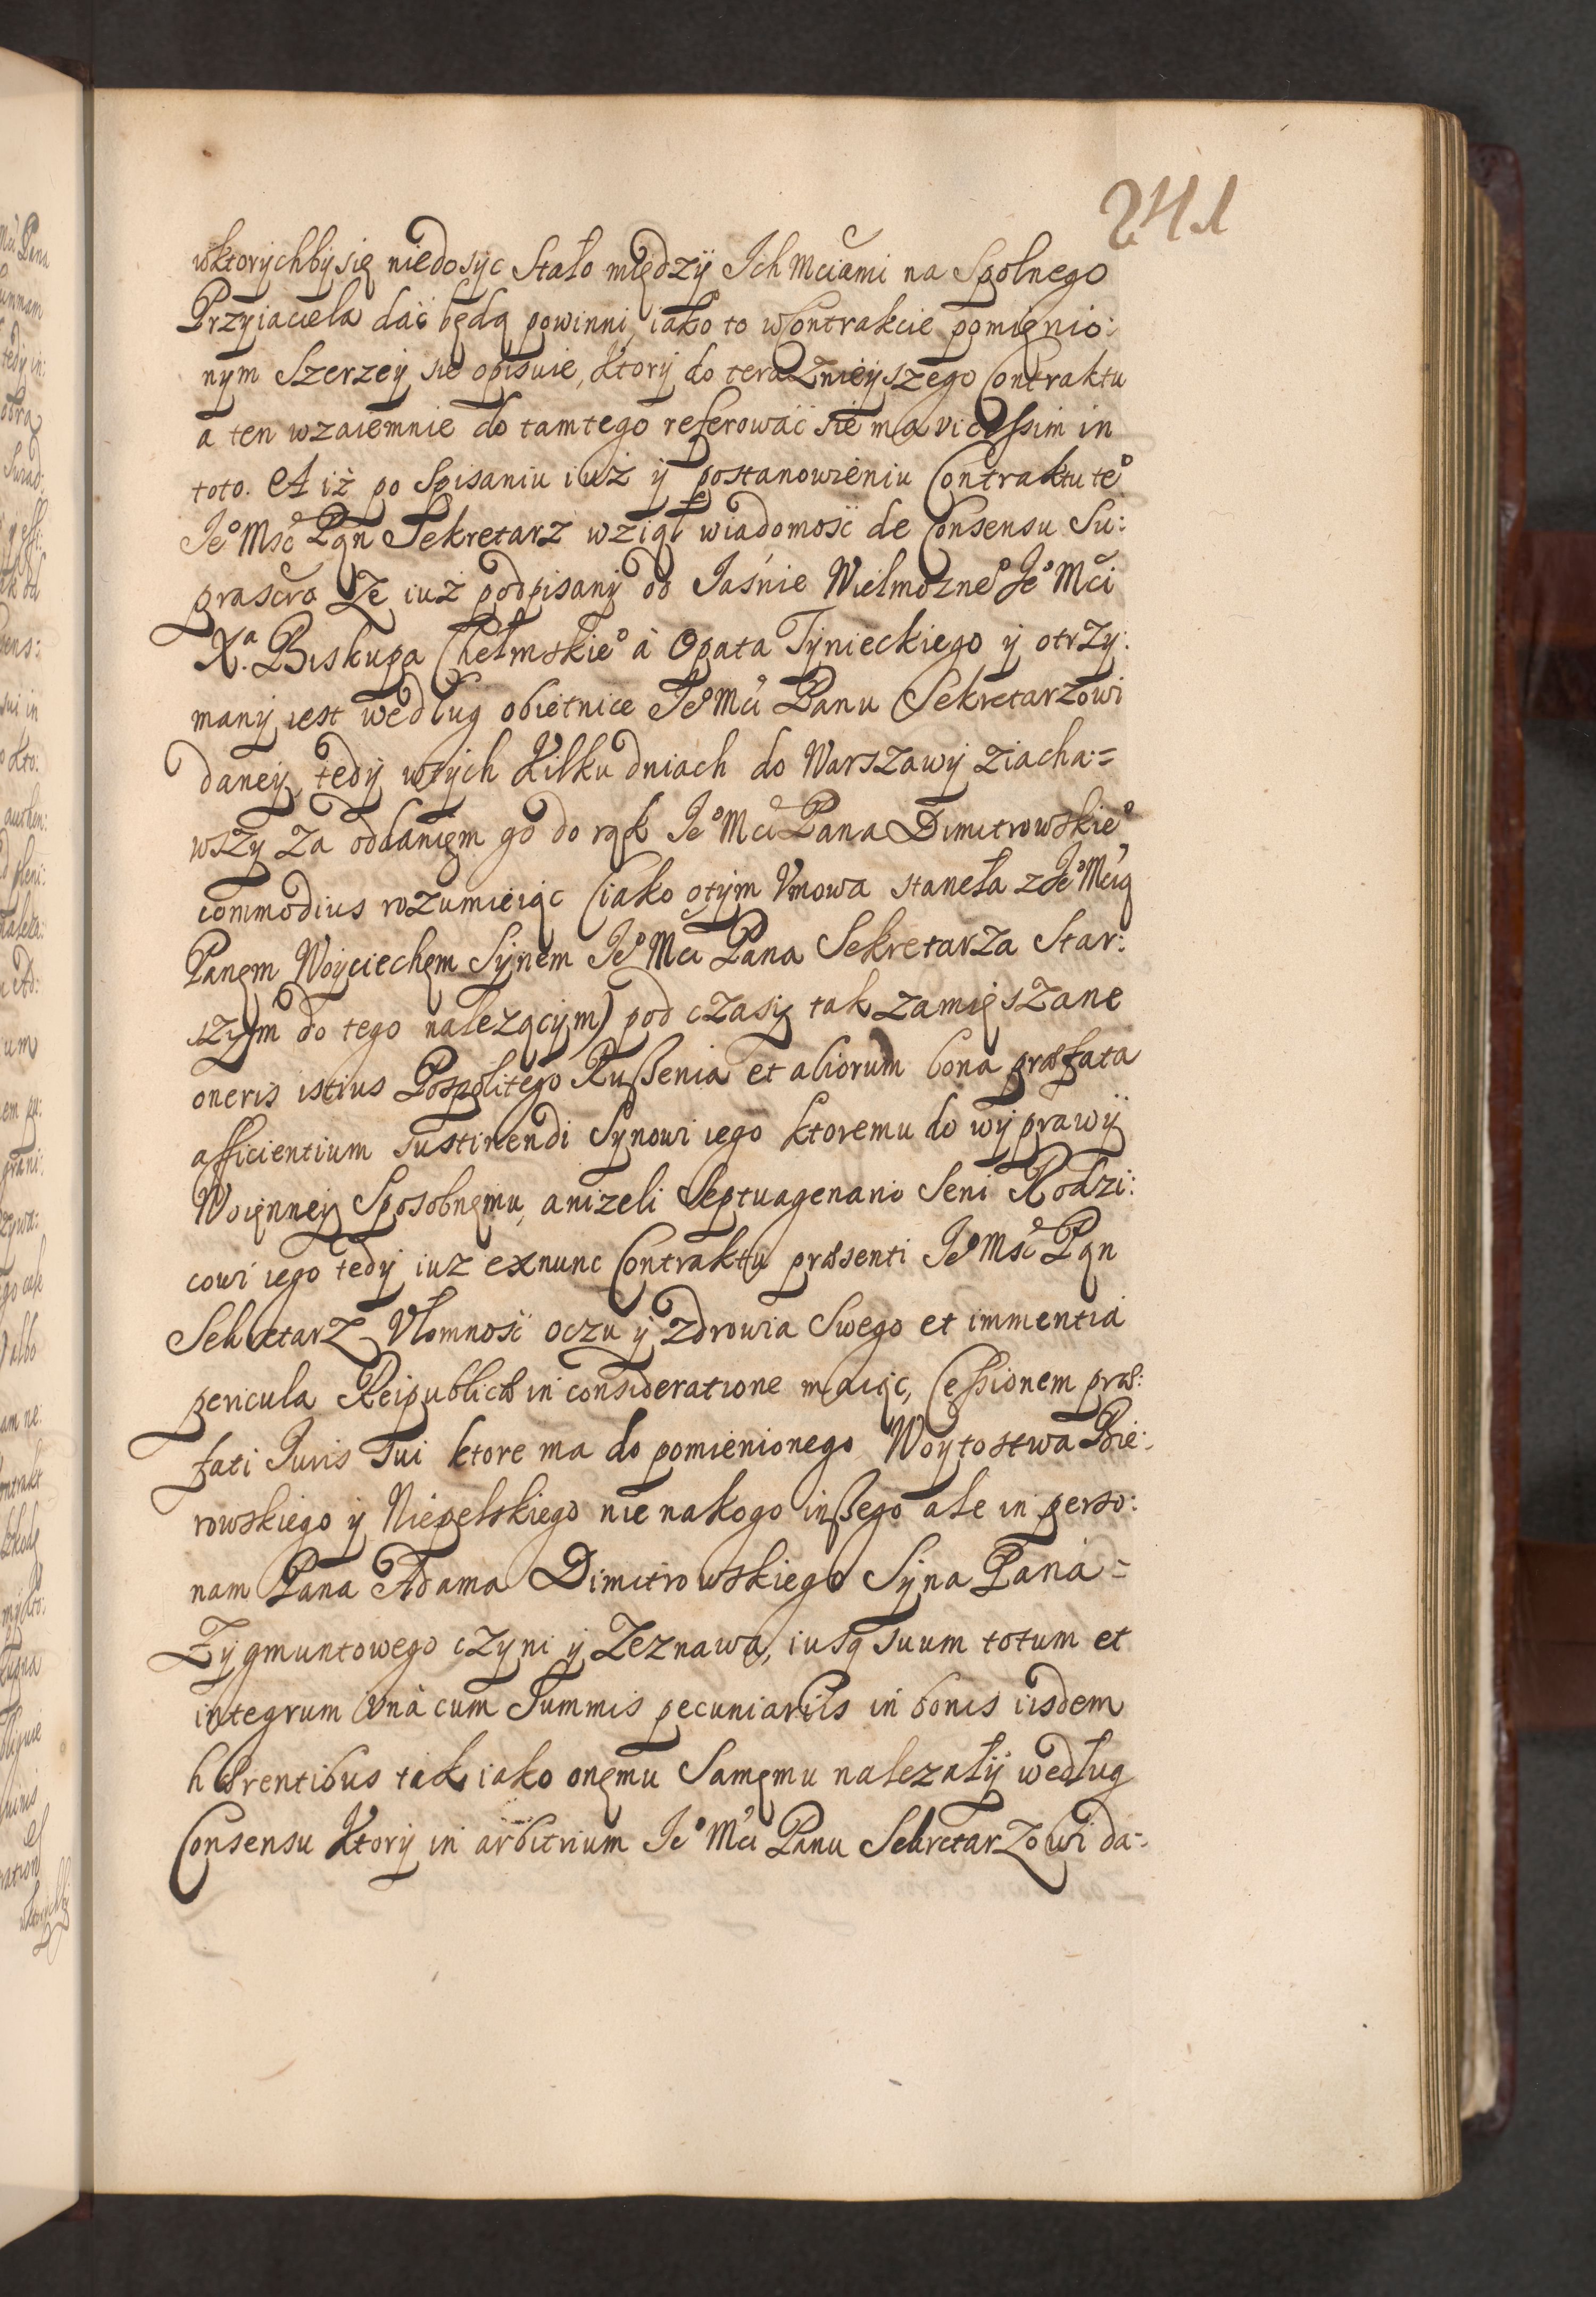 241
wktorychby się niedosyc Stało międzÿ Ich Mciami na Spolnego
Przyiaciela dać będą powinni, iako to w Contrakcie pomięnio:
nym Szerzeÿ sie opisuie, Ktory do teraznieyszego Contraktu
a ten wzaiemnie do tamtego referować sie ma vicissim in
toto. A iż po Spisaniu iuż ÿ postanowieniu Contraktu te°
Je° Msć Pąn Sekretarz wziął wiadomość de Consensu Su:
prascro Ze iuż podpisany od Jaśnie Wielmożne° Je° Mci
X.ᵃ Biskupa Chełmskie° à Opata Tynieckiego ÿ otrzy:
many iest według obietnice Je° Mci Panu Sekretarzowi
daneÿ, tedÿ wtych Kilku dniach do Warszawy ziacha:=
wszy za oddanięm go do rąk Je° Mci Pana Dimitrowskie°
commodius rozumieiąc (iako otym Vmowa staneła z Je° Mcią
Panęm Woyciechęm Synem Je° Mci Pana Sekretarza Star:
szym do tego należącym) pod czasy tak zamięszane
oneris istius Pospolitego Rußenia et aliorum bona præfata
afficientium sustinendi Synowi iego ktoremu do wyprawÿ
Woięnneÿ Sposobnęmu, anizeli Septuagenario Seni Rodzi:
cowi iego tedÿ iuz exnunc Contraktu præsenti Je° Msć Pąn
Sekretarz Vłomność oczu ÿ Zdrowia Swego et immentia
pericula Reipublicæ in consideratione maiąc, Cessionem præ:
fati Juris Sui ktore ma do pomienionego Woytostwa Bie:
rowskiego ÿ Niepelskiego nie nakogo inßego ale in perso:
nam Pana Adama Dimitrowskiego Syna Pana=
Zygmuntowego czyni ÿ Zeznawa, iusq suum totum et
integrum vnà cum Summis pecuniariis in bonis iisdem
hærentibus tak iako onęmu Samęmu nalezałÿ według
Consensu Ktory in arbitrium Je° Mci Panu Sekretarzowi da=